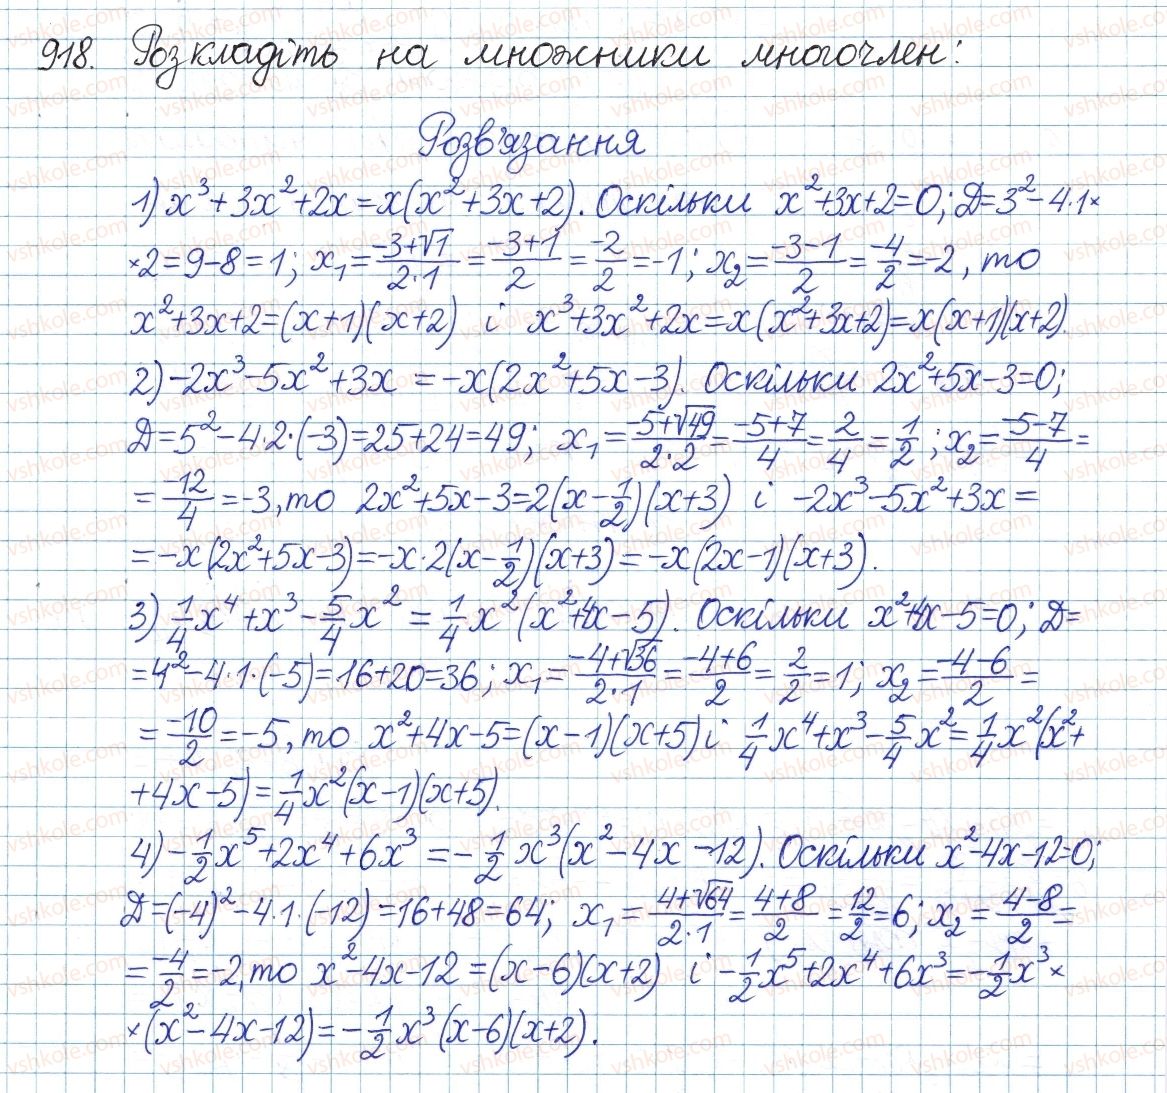 918. Розкладіть на множники многочлен:
Розв'язання
1) x³+3x²+2x=x(x²+3x+2). Оскільки x²+3x+2=0; D=3²-4·1×
×2=9-8=1; x₁=(-3+√1)/(2·1)=(-3+1)/2=-2/2=-1; x₂=(-3-1)/2=-4/2=-2, то
x²+3x+2=(x+1)(x+2) і x³+3x²+2x=x(x²+3x+2)=x(x+1)(x+2).
2) -2x³-5x²+3x =-x(2x²+5x-3). Оскільки 2x²+5x-3=0;
D=5²-4·2·(-3)=25+24=49; x₁=(-5+√49)/(2·2)=(-5+7)/4=2/4=1/2; x₂=(-5-7)/4=
=-12/4=-3, то 2x²+5x-3=2(x-1/2)(x+3) і -2x³-5x²+3x=
=-x(2x²+5x-3)=-x·2(x-1/2)(x+3)=-x(2x-1)(x+3).
3) 1/4x⁴+x³-5/4x²=1/4x²(x²+4x-5). Оскільки x²+4x-5=0; D=
=4²-4·1·(-5)=16+20=36; x₁=(-4+√36)/(2·1)=(-4+6)/2=2/2=1; x₂=(-4-6)/2=
=-10/2=-5, то x²+4x-5=(x-1)(x+5) і 1/4x⁴+x³-5/4x²=1/4x²(x²+
+4x-5)=1/4x²(x-1)(x+5).
4) -1/2x⁵+2x⁴+6x³=-1/2x³(x²-4x-12). Оскільки x²-4x-12=0;
D=(-4)²-4·1·(-12)=16+48=64; x₁=(4+√64)/(2·1)=(4+8)/2=12/2=6; x₂=(4-8)/2=
=-4/2=-2, то x²-4x-12=(x-6)(x+2) і -1/2x⁵+2x⁴+6x³=-1/2x³×
×(x²-4x-12)=-1/2x³(x-6)(x+2).